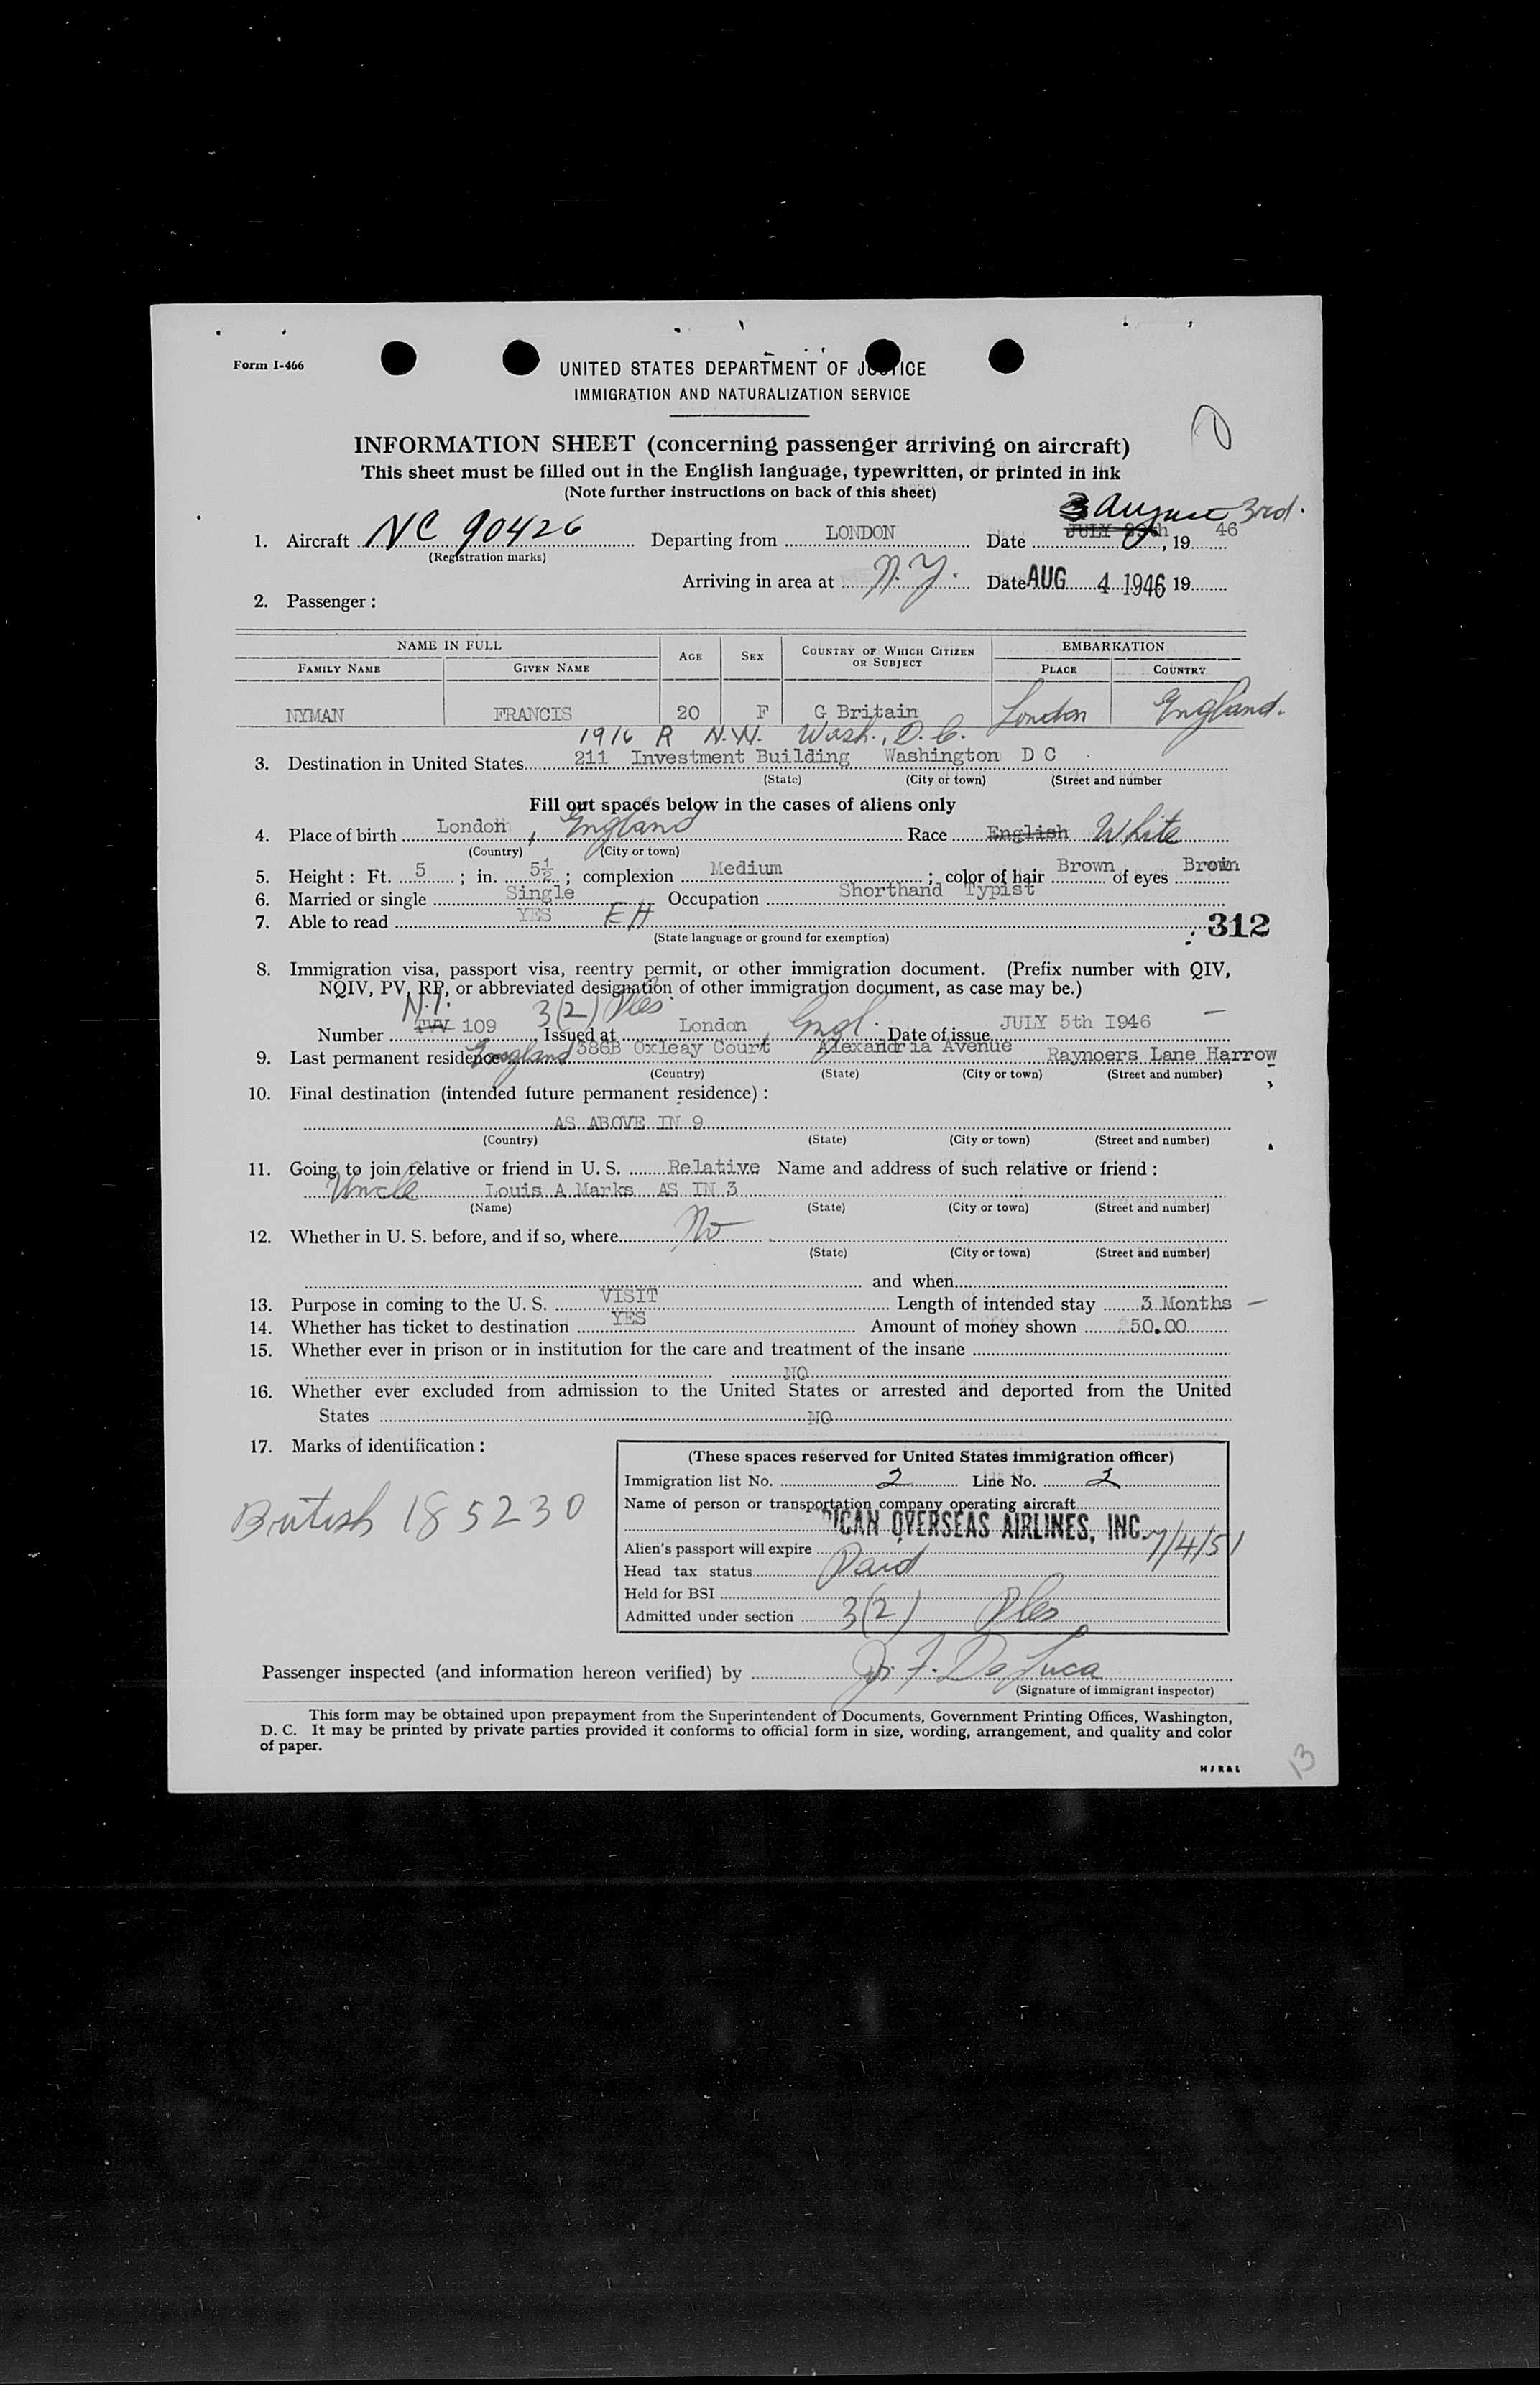 Form I-466
UNITED STATES DEPARTMENT OF JUSTICE
IMMIGRATION AND NATURALIZATION SERVICE
INFORMATION SHEET (concerning passenger arriving on aircraft)
This sheet must be filled out in the English language, typewritten, or printed in ink
(Note further instructions on back of this sheet)
3 August 3rd.
1. Aircraft NC 90426 Departing from LONDON Date JULY, 19 46
(Registration marks)
Arriving in area at N.Y. Date AUG 4 1946 19
2. Passenger :
NAME IN FULL AGE SEX COUNTRY OF WHICH CITIZEN OR SUBJECT EMBARKATION
FAMILY NAME GIVEN NAME PLACE COUNTRY
NYMAN FRANCIS 20 F G Britain London England.
1916 R N.W. Wash., D.C.
3. Destination in United States 211 Investment Building Washington D C
(State) (City or town) (Street and number
Fill out spaces below in the cases of aliens only
4. Place of birth London, England Race English White
(Country) (City or town)
5. Height : Ft. 5 ; in. 5½ ; complexion Medium ; color of hair Brown of eyes Brown
6. Married or single Single Occupation Shorthand Typist
7. Able to read YES EH
(State language or ground for exemption)
312
8. Immigration visa, passport visa, reentry permit, or other immigration document. (Prefix number with QIV,
NQIV, PV, RP, or abbreviated designation of other immigration document, as case may be.)
3(2)
Number 109 Issued at London, Engl. Date of issue JULY 5th I946
9. Last permanent residence England 386B Oxleay Court Alexandria Avenue Raynoers Lane Harrow
(Country) (State) (City or town) (Street and number)
10. Final destination (intended future permanent residence) :
AS ABOVE IN 9
(Country) (State) (City or town) (Street and number)
11. Going to join relative or friend in U. S. Relative Name and address of such relative or friend :
Uncle Louis A Marks AS IN 3
(Name) (State) (City or town) (Street and number)
12. Whether in U. S. before, and if so, where No
(State) (City or town) (Street and number)
and when
13. Purpose in coming to the U. S. VISIT Length of intended stay 3 Months
14. Whether has ticket to destination YES Amount of money shown 50.00
15. Whether ever in prison or in institution for the care and treatment of the insane
NO
16. Whether ever excluded from admission to the United States or arrested and deported from the United
States NO
17. Marks of identification :
British 185230
(These spaces reserved for United States immigration officer)
Immigration list No. 2 Line No. 2
Name of person or transportation company operating aircraft
ICAN OVERSEAS AIRLINES, INC.
Alien's passport will expire 7/4/51
Head tax status Paid
Held for BSI
Admitted under section 3(2)
Passenger inspected (and information hereon verified) by F. De Luca
(Signature of immigrant inspector)
This form may be obtained upon prepayment from the Superintendent of Documents, Government Printing Offices, Washington,
D. C. It may be printed by private parties provided it conforms to official form in size, wording, arrangement, and quality and color
of paper.
13